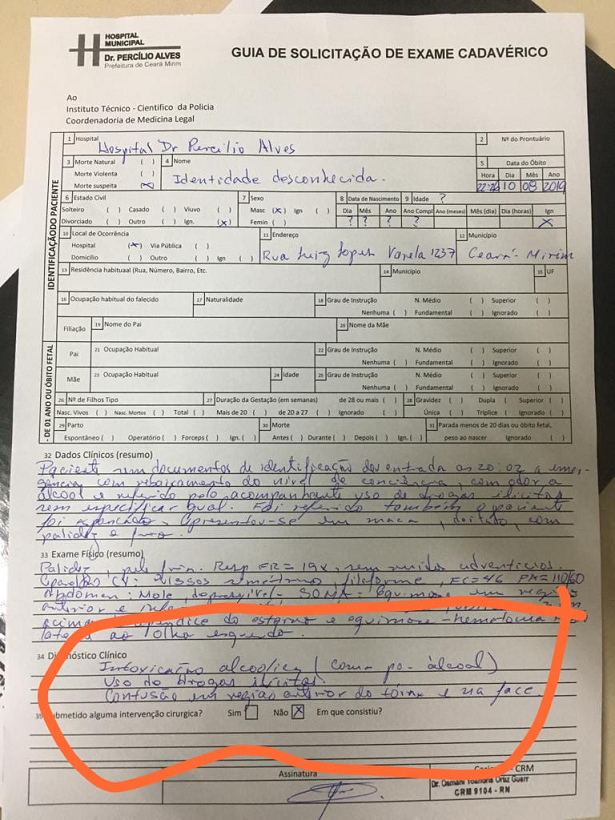 HOSPITAL
MUNICIPAL
Dr. PERCÍLIO ALVES
Prefeitura de Ceará Mirim
GUIA DE SOLICITAÇÃO DE EXAME CADAVÉRICO
Ao
Instituto Técnico - Cientifico da Policia
Coordenadoria de Medicina Legal
IDENTIFICAÇÃO DO PACIENTE
1 Hospital Hospital Dr Percilio Alves 2 Nº do Prontuário
3 Morte Natural ( ) 4 Nome 5 Data do Óbito
Morte Violenta ( ) Identidade desconhecida. Hora Dia Mês Ano
Morte suspeita (x) 10 08 2019
6 Estado Civil 7 Sexo 8 Data de Nascimento 9 Idade ?
Solteiro ( ) Casado ( ) Viuvo ( ) Masc (x) Ign ( ) Dia Mês Ano Ano Compl Ano (meses) Mês (dia) Dia (horas) Ign
Divorciado ( ) Outro ( ) Ign. (x) Femin ( ) ? ? ? X
10 Local de Ocorrência 11 Endereço 12 Município
Hospital (x) Via Pública ( ) Rua Luiz Lopes Varela 1237 Ceará-Mirim
Domicílio ( ) Outro ( ) Ign ( )
13 Residência habituaal (Rua, Número, Bairro, Etc. 14 Município 15 UF
16 Ocupação habitual do falecido 17 Naturalidade 18 Grau de Instrução N. Médio ( ) Superior ( )
Nenhuma ( ) Fundamental ( ) Ignorado ( )
- DE 01 ANO OU ÓBITO FETAL
Filiação 19 Nome do Pai 20 Nome da Mãe
Pai 21 Ocupação Habitual 22 Grau de Instrução N. Médio ( ) Superior ( )
Nenhuma ( ) Fundamental ( ) Ignorado ( )
Mãe 23 Ocupação Habitual 24 Idade 25 Grau de Instrução N. Médio ( ) Superior ( )
Nenhuma ( ) Fundamental ( ) Ignorado ( )
26 Nº de Filhos Tipo 27 Duração da Gestação (em semanas) de 28 ou mais ( ) 28 Gravidez Dupla ( ) Superior ( )
Nasc. Vivos ( ) Nasc. Mortos ( ) Total ( ) Mais de 20 ( ) de 20 a 27 ( ) Ignorado ( ) Única ( ) Tríplice ( ) Ignorado ( )
29 Parto 30 Morte 31 Parada menos de 20 dias ou óbito fetal,
Espontâneo ( ) Operatório ( ) Forceps ( ) Ign. ( ) Antes ( ) Durante ( ) Depois ( ) Ignorado ( ) peso ao nascer
32 Dados Clínicos (resumo)
Paciente sem documentos de identificação dos entrada as 20:02 a emer-
gência com rebaixamento do nivel de conciência, com odor a
álcool e referido pelo acompanhante uso de drogas ilicitas
sem especificar qual. Foi referido também o paciente
foi Apresentou-se em maca, deitado, com
palidez e frio.
33 Exame Físico (resumo)
Palidez, pele fria. Resp FR= 19x, sem ruidos adventicios.
filiforme, FC=46 PA=110/60
Abdomen: Mole, depressivel. Equimose em região
anterior e
apêndice do esterno e equimose-hematoma
lateral ao olho esquerdo.
34 Diagnóstico Clínico
Intoxicação alcoolica (coma por álcool)
Uso de drogas ilicitas
Contusão em região anterior do tórax e na face
35 Submetido alguma intervenção cirurgica? Sim Não X Em que consistiu?
Assinatura CRM
CRM 9104 - RN